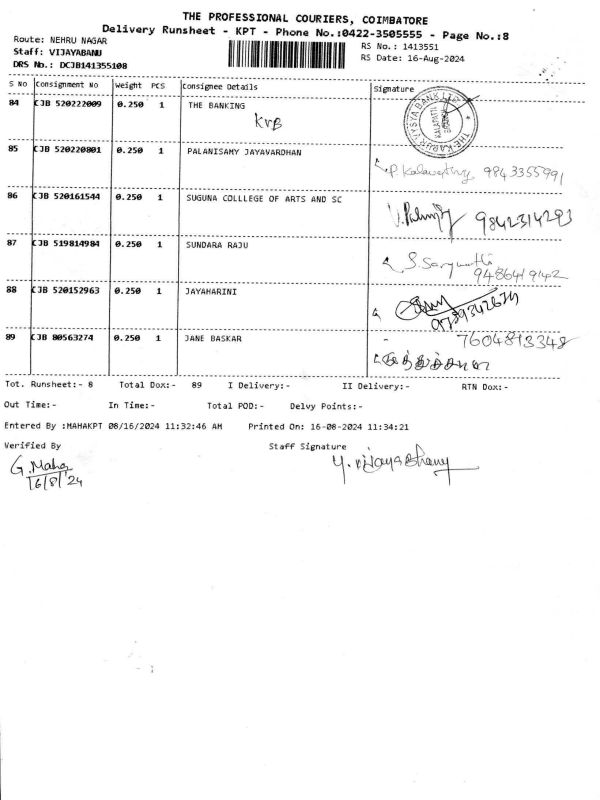 THE PROFESSIONAL COURIERS, COIMBATORE
Delivery Runsheet - KPT - Phone No.:0422-3505555 - Page No.:8
Route: NEHRU NAGAR
RS No.: 1413551
Staff: VIJAYABANU
RS Date: 16-Aug-2024
DRS No.: DCJB141355108
S No Consignment No Weight PCS Consignee Details Signature
84 CJB 520222009 0.250 1 THE BANKING
KVB
THE KARUR VYSYA BANK LTD
85 CJB 520220801 0.250 1 PALANISAMY JAYAVARDHAN
9843355991
86 CJB 520161544 0.250 1 SUGUNA COLLLEGE OF ARTS AND SC
9842314293
87 CJB 519814984 0.250 1 SUNDARA RAJU
9486419142
88 CJB 520152963 0.250 1 JAYAHARINI
89 CJB 80563274 0.250 1 JANE BASKAR
7604813348
Tot. Runsheet:- 8 Total Dox:- 89 I Delivery:- II Delivery:- RTN Dox:-
Out Time:- In Time:- Total POD:- Delvy Points:-
Entered By :MAHAKPT 08/16/2024 11:32:46 AM Printed On: 16-08-2024 11:34:21
Verified By Staff Signature
G. Maha
16/8/24